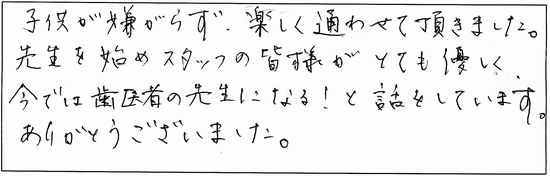 子供が嫌がらず、楽しく通わせて頂きました。
先生を始めスタッフの皆様がとても優しく、
今では歯医者の先生になる！と話をしています。
ありがとうございました。